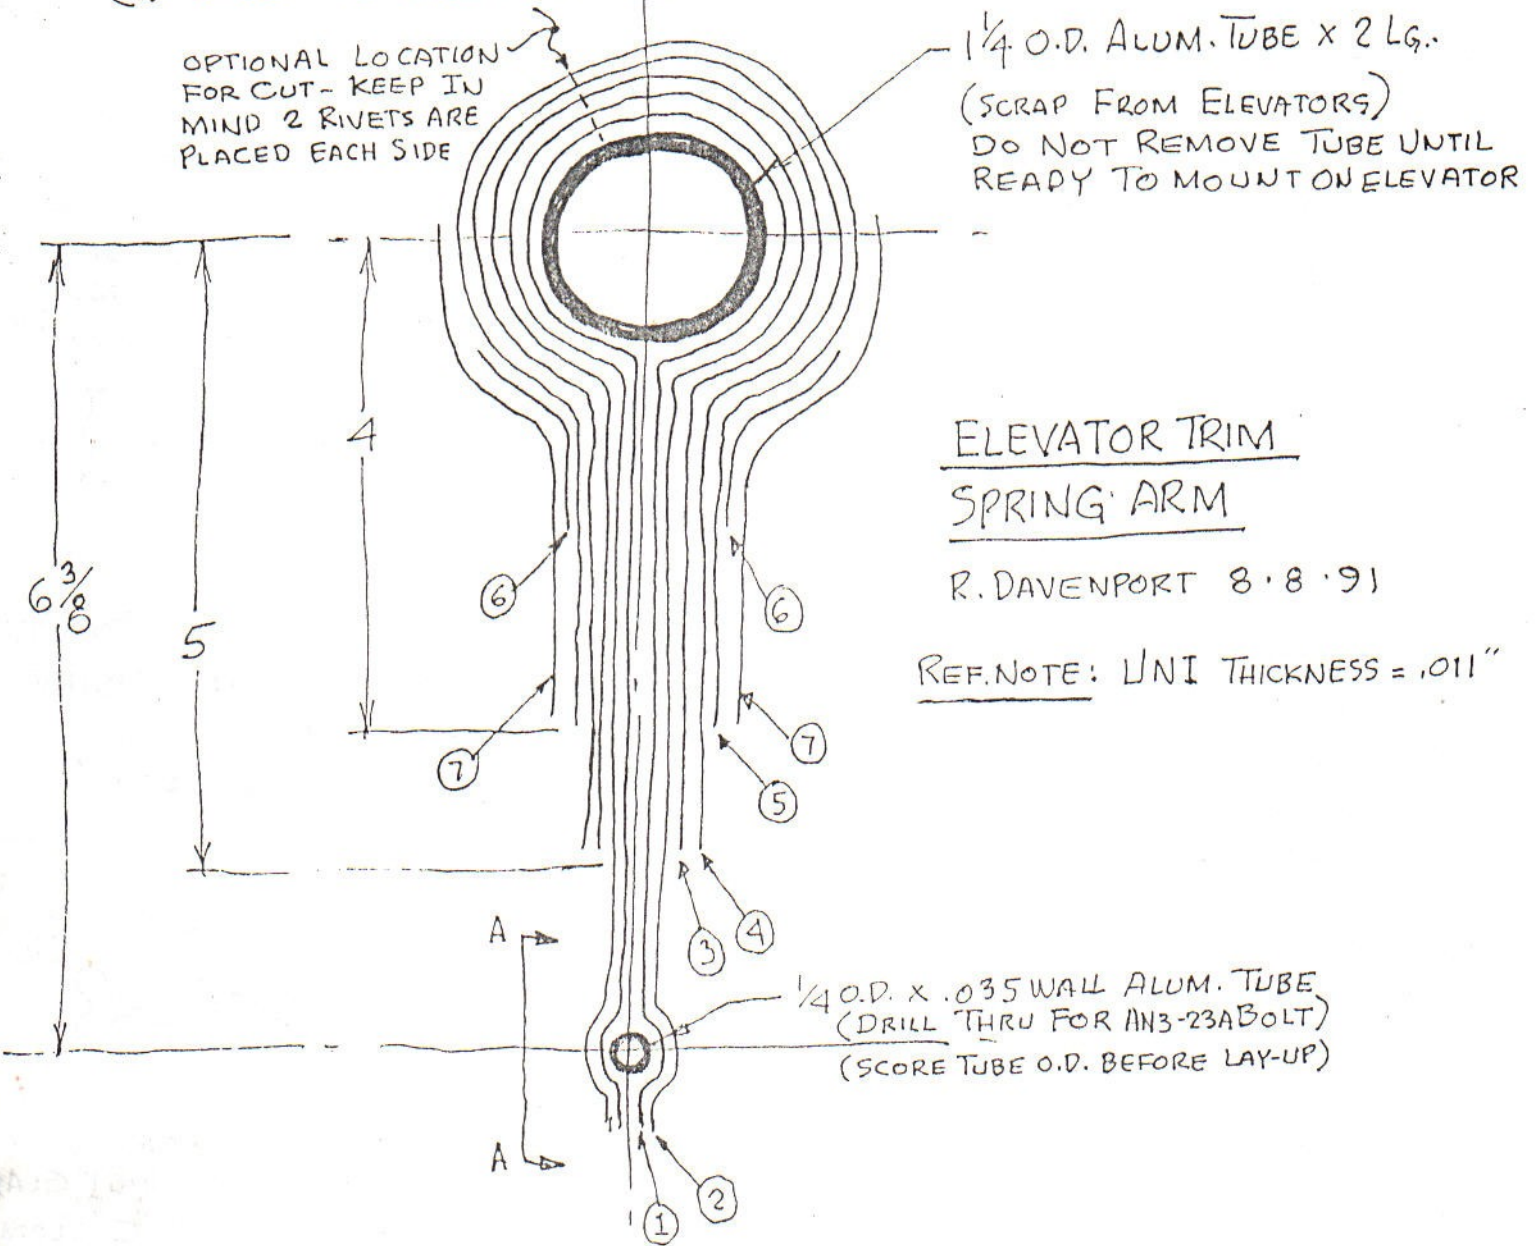 OPTIONAL LOCATION
FOR CUT - KEEP IN
MIND 2 RIVETS ARE
PLACED EACH SIDE
1 1/4 O.D. ALUM. TUBE X 2 LG.
(SCRAP FROM ELEVATORS)
DO NOT REMOVE TUBE UNTIL
READY TO MOUNT ON ELEVATOR
4
6 3/8
5
ELEVATOR TRIM
SPRING ARM
R. DAVENPORT 8·8·91
REF. NOTE: UNI THICKNESS = .011"
6
6
7
7
5
3
4
A
1/4 O.D. X .035 WALL ALUM. TUBE
(DRILL THRU FOR AN3-23A BOLT)
(SCORE TUBE O.D. BEFORE LAY-UP)
A
1
2